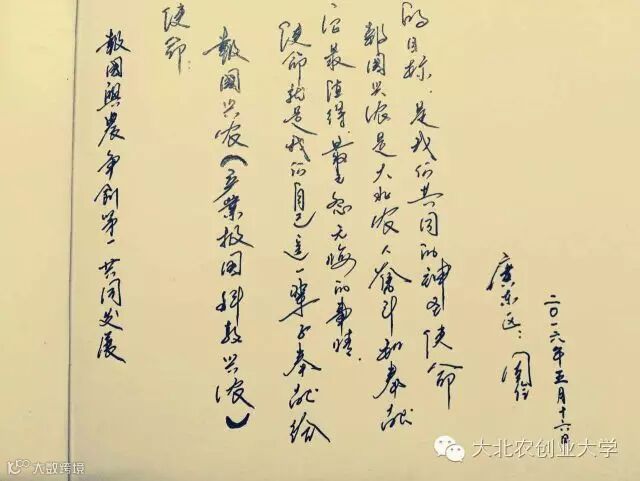 報國興農争創第一共同发展
使命:
報國兴农(产業报国科教兴农)
使命就是我们自己这一辈子奉献给
最值得、最怨无悔的事情.
報国兴农是大北农人奋斗和奉献
的目标,是我们共同的神圣使命
廣东区:周
二〇一六年五月十六日
大北农创业大学
10100 大数跨境